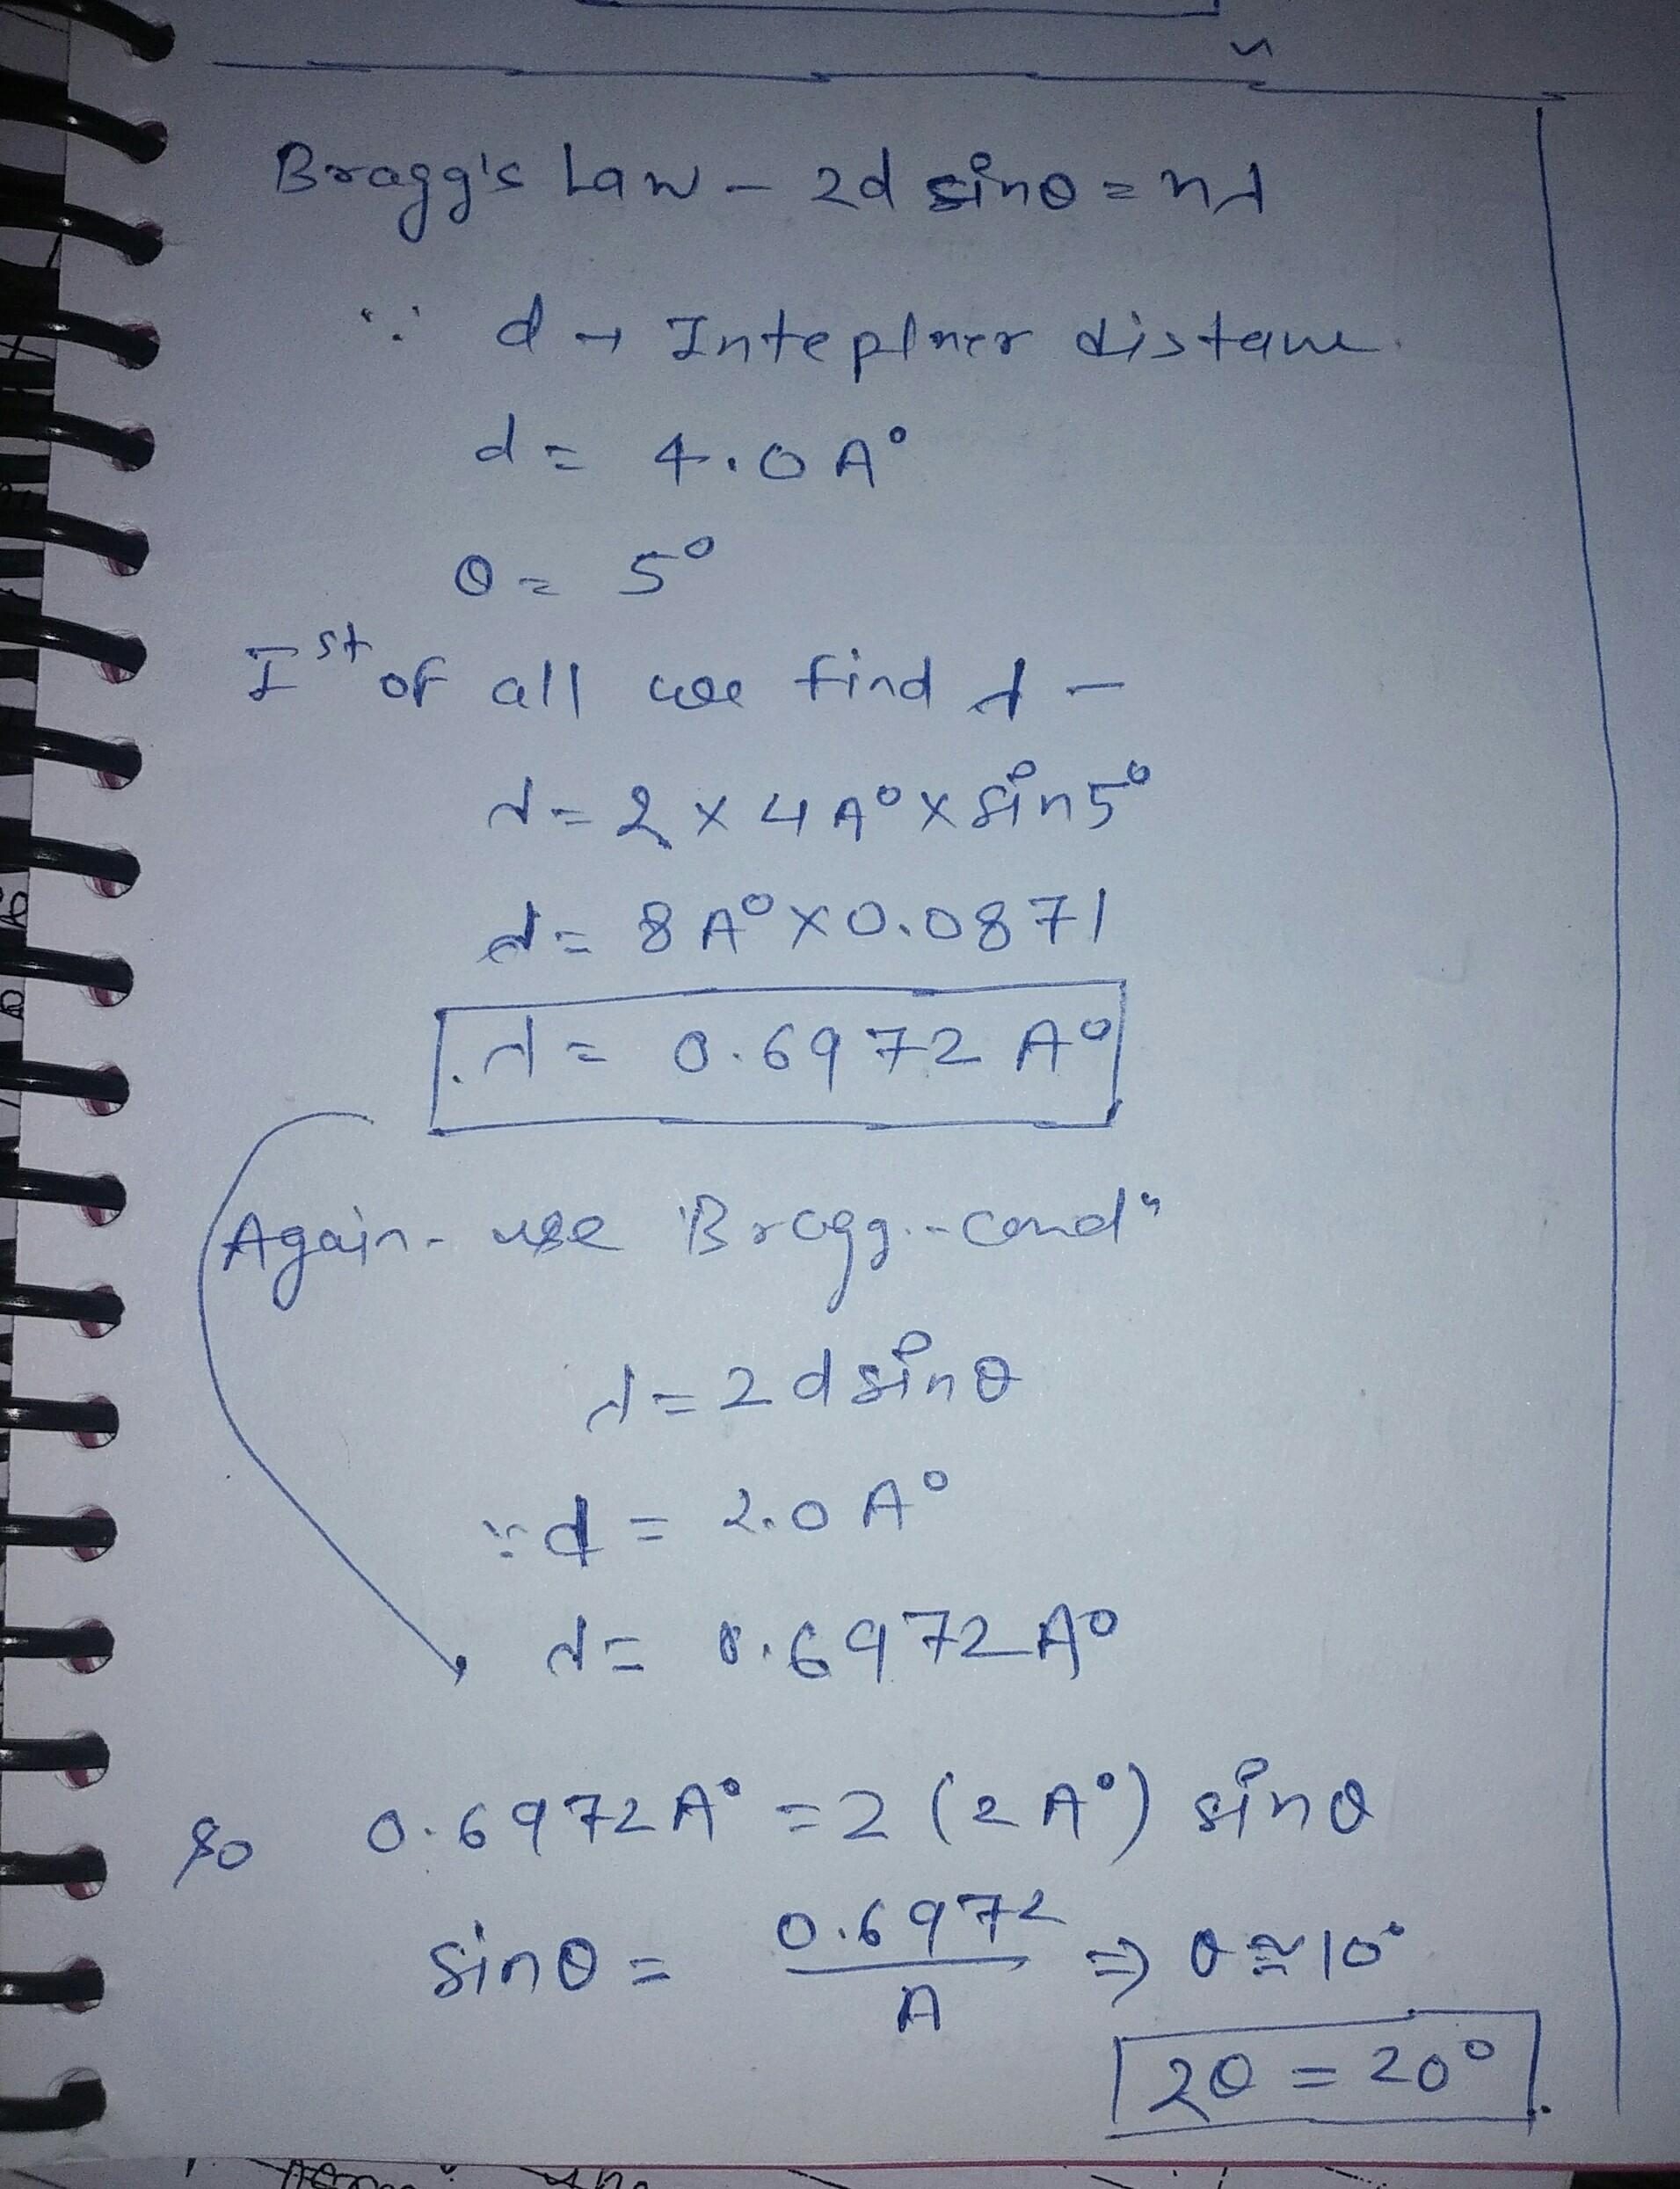 Bragg's Law - 2d sinθ = nλ
∵ d → Inteplner distance
d = 4.0 A°
θ = 5°
Ist of all we find λ -
λ = 2 × 4 A° × sin5°
λ = 8 A° × 0.0871
λ = 0.6972 A°
Again - use Bragg - condn
λ = 2d sinθ
∵ d = 2.0 A°
λ = 0.6972 A°
so 0.6972 A° = 2 (2 A°) sinθ
sinθ = 0.6972 / A ⇒ θ ≅ 10°
2θ = 20°